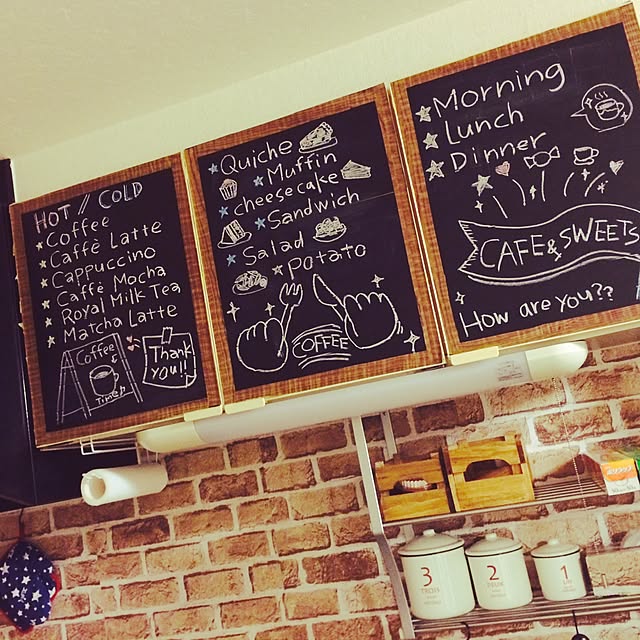 HOT // COLD
Coffee
Caffè Latte
Cappuccino
Caffè Mocha
Royal Milk Tea
Matcha Latte
Coffee
Time
Thank
you!!
Quiche
Muffin
cheesecake
Sandwich
Salad
potato
COFFEE
Morning
Lunch
Dinner
CAFE & SWEETS
How are you??
3
TROIS
2
DEUX
1
UN